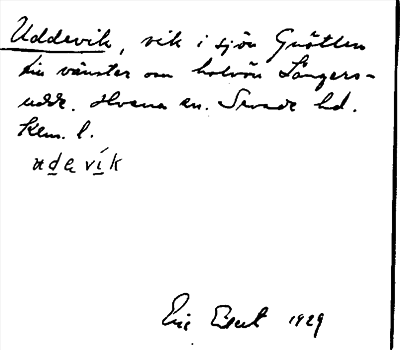 Uddevik, vik i sjön Gnötteln
till vänster om halvön Långers-
udde. Hvena sn. Sevede hd.
Kalm. l.
udevik
Eric Elert 1929